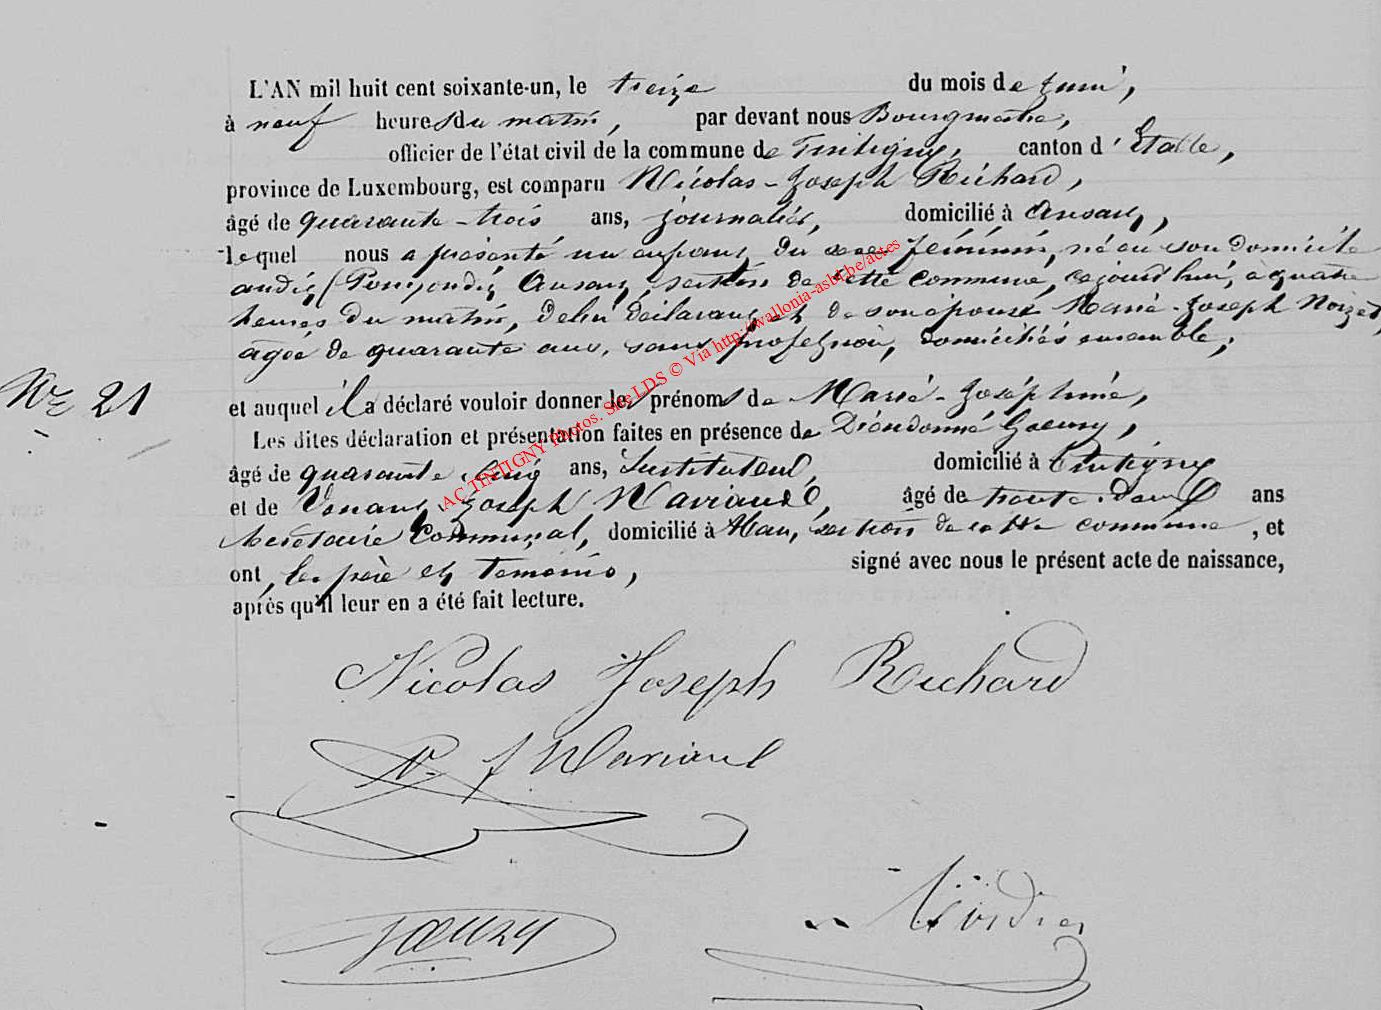 L'AN mil huit cent soixante-un, le treize du mois de Juin,
à neuf heures du matin, par devant nous Bourgmestre,
officier de l'état civil de la commune de Tintigny, canton d'Etalle,
province de Luxembourg, est comparu Nicolas-Joseph Richard,
âgé de quarante-trois ans, journalier, domicilié à Ansart,
lequel nous a présenté un enfant du sexe féminin, né en son domicile
audit Ansart, section de cette commune, cejourd'hui, à quatre
heures du matin, de lui déclarant et de son épouse Marie-Joseph Noizet,
agée de quarante ans, sans profession, domiciliés ensemble,
N° 21
et auquel il a déclaré vouloir donner les prénoms de Marie-Joséphine,
Les dites déclaration et présentation faites en présence de Dieudonné Goeury,
âgé de quarante cinq ans, Instituteur, domicilié à Tintigny
et de Venant Joseph Naviaux, âgé de trente-deux ans
Secrétaire Communal, domicilié à Han, section de cette commune, et
ont, les père et temoins, signé avec nous le présent acte de naissance,
après qu'il leur en a été fait lecture.
Nicolas Joseph Richard
AC TINTIGNY Photos. Site LDS © Via http://wallonia-asbl.be/actes